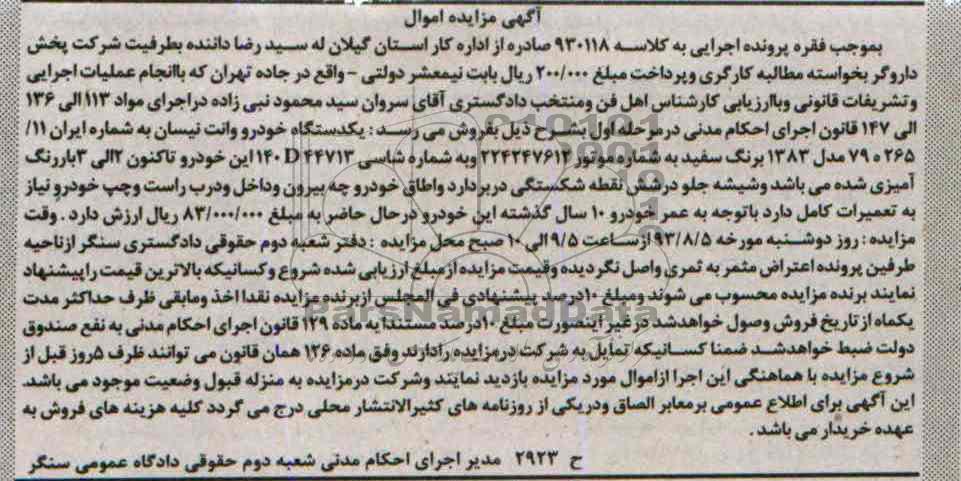 آگهی مزایده اموال
بموجب فقره پرونده اجرایی به کلاسه ۹۳۰۱۱۸ صادره از اداره کار استان گیلان له سید رضا داننده بطرفیت شرکت پخش
داروگر بخواسته مطالبه کارگری وپرداخت مبلغ ۲۰۰/۰۰۰ ریال بابت نیمعشر دولتی - واقع در جاده تهران که باانجام عملیات اجرایی
وتشریفات قانونی وباارزیابی کارشناس اهل فن ومنتخب دادگستری آقای سروان سید محمود نبی زاده دراجرای مواد ۱۱۳ الی ۱۳۶
الی ۱۴۷ قانون اجرای احکام مدنی درمرحله اول بشرح ذیل بفروش می رسد : یکدستگاه خودرو وانت نیسان به شماره ایران ۱۱/
۲۶۵ ه ۷۹ مدل ۱۳۸۳ برنگ سفید به شماره موتور ۲۲۴۲۴۷۶۱۲ وبه شماره شاسی ۱۴۰D۴۴۷۱۳ این خودرو تاکنون ۲الی ۳باررنگ
آمیزی شده می باشد وشیشه جلو درشش نقطه شکستگی دربردارد واطاق خودرو چه بیرون وداخل ودرب راست وچپ خودرو نیاز
به تعمیرات کامل دارد باتوجه به عمر خودرو ۱۰ سال گذشته این خودرو درحال حاضر به مبلغ ۸۳/۰۰۰/۰۰۰ ریال ارزش دارد . وقت
مزایده : روز دوشنبه مورخه ۹۳/۸/۵ ازساعت ۹/۵ الی ۱۰ صبح محل مزایده : دفتر شعبه دوم حقوقی دادگستری سنگر ازناحیه
طرفین پرونده اعتراض مثمر به ثمری واصل نگردیده وقیمت مزایده ازمبلغ ارزیابی شده شروع وکسانیکه بالاترین قیمت راپیشنهاد
نمایند برنده مزایده محسوب می شوند ومبلغ ۱۰درصد پیشنهادی فی المجلس ازبرنده مزایده نقدا اخذ ومابقی ظرف حداکثر مدت
یکماه از تاریخ فروش وصول خواهدشد درغیر اینصورت مبلغ ۱۰درصد مستندا به ماده ۱۲۹ قانون اجرای احکام مدنی به نفع صندوق
دولت ضبط خواهدشد ضمنا کسانیکه تمایل به شرکت درمزایده رادارند وفق ماده ۱۲۶ همان قانون می توانند ظرف ۵روز قبل از
شروع مزایده با هماهنگی این اجرا ازاموال مورد مزایده بازدید نمایند وشرکت درمزایده به منزله قبول وضعیت موجود می باشد.
این آگهی برای اطلاع عمومی برمعابر الصاق ودریکی از روزنامه های کثیرالانتشار محلی درج می گردد کلیه هزینه های فروش به
عهده خریدار می باشد .
ح ۲۹۲۳ مدیر اجرای احکام مدنی شعبه دوم حقوقی دادگاه عمومی سنگر
ParsNamadData